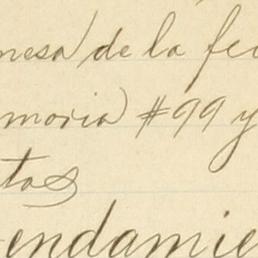 mesa de la fe
moria #99 y
tas
endamie